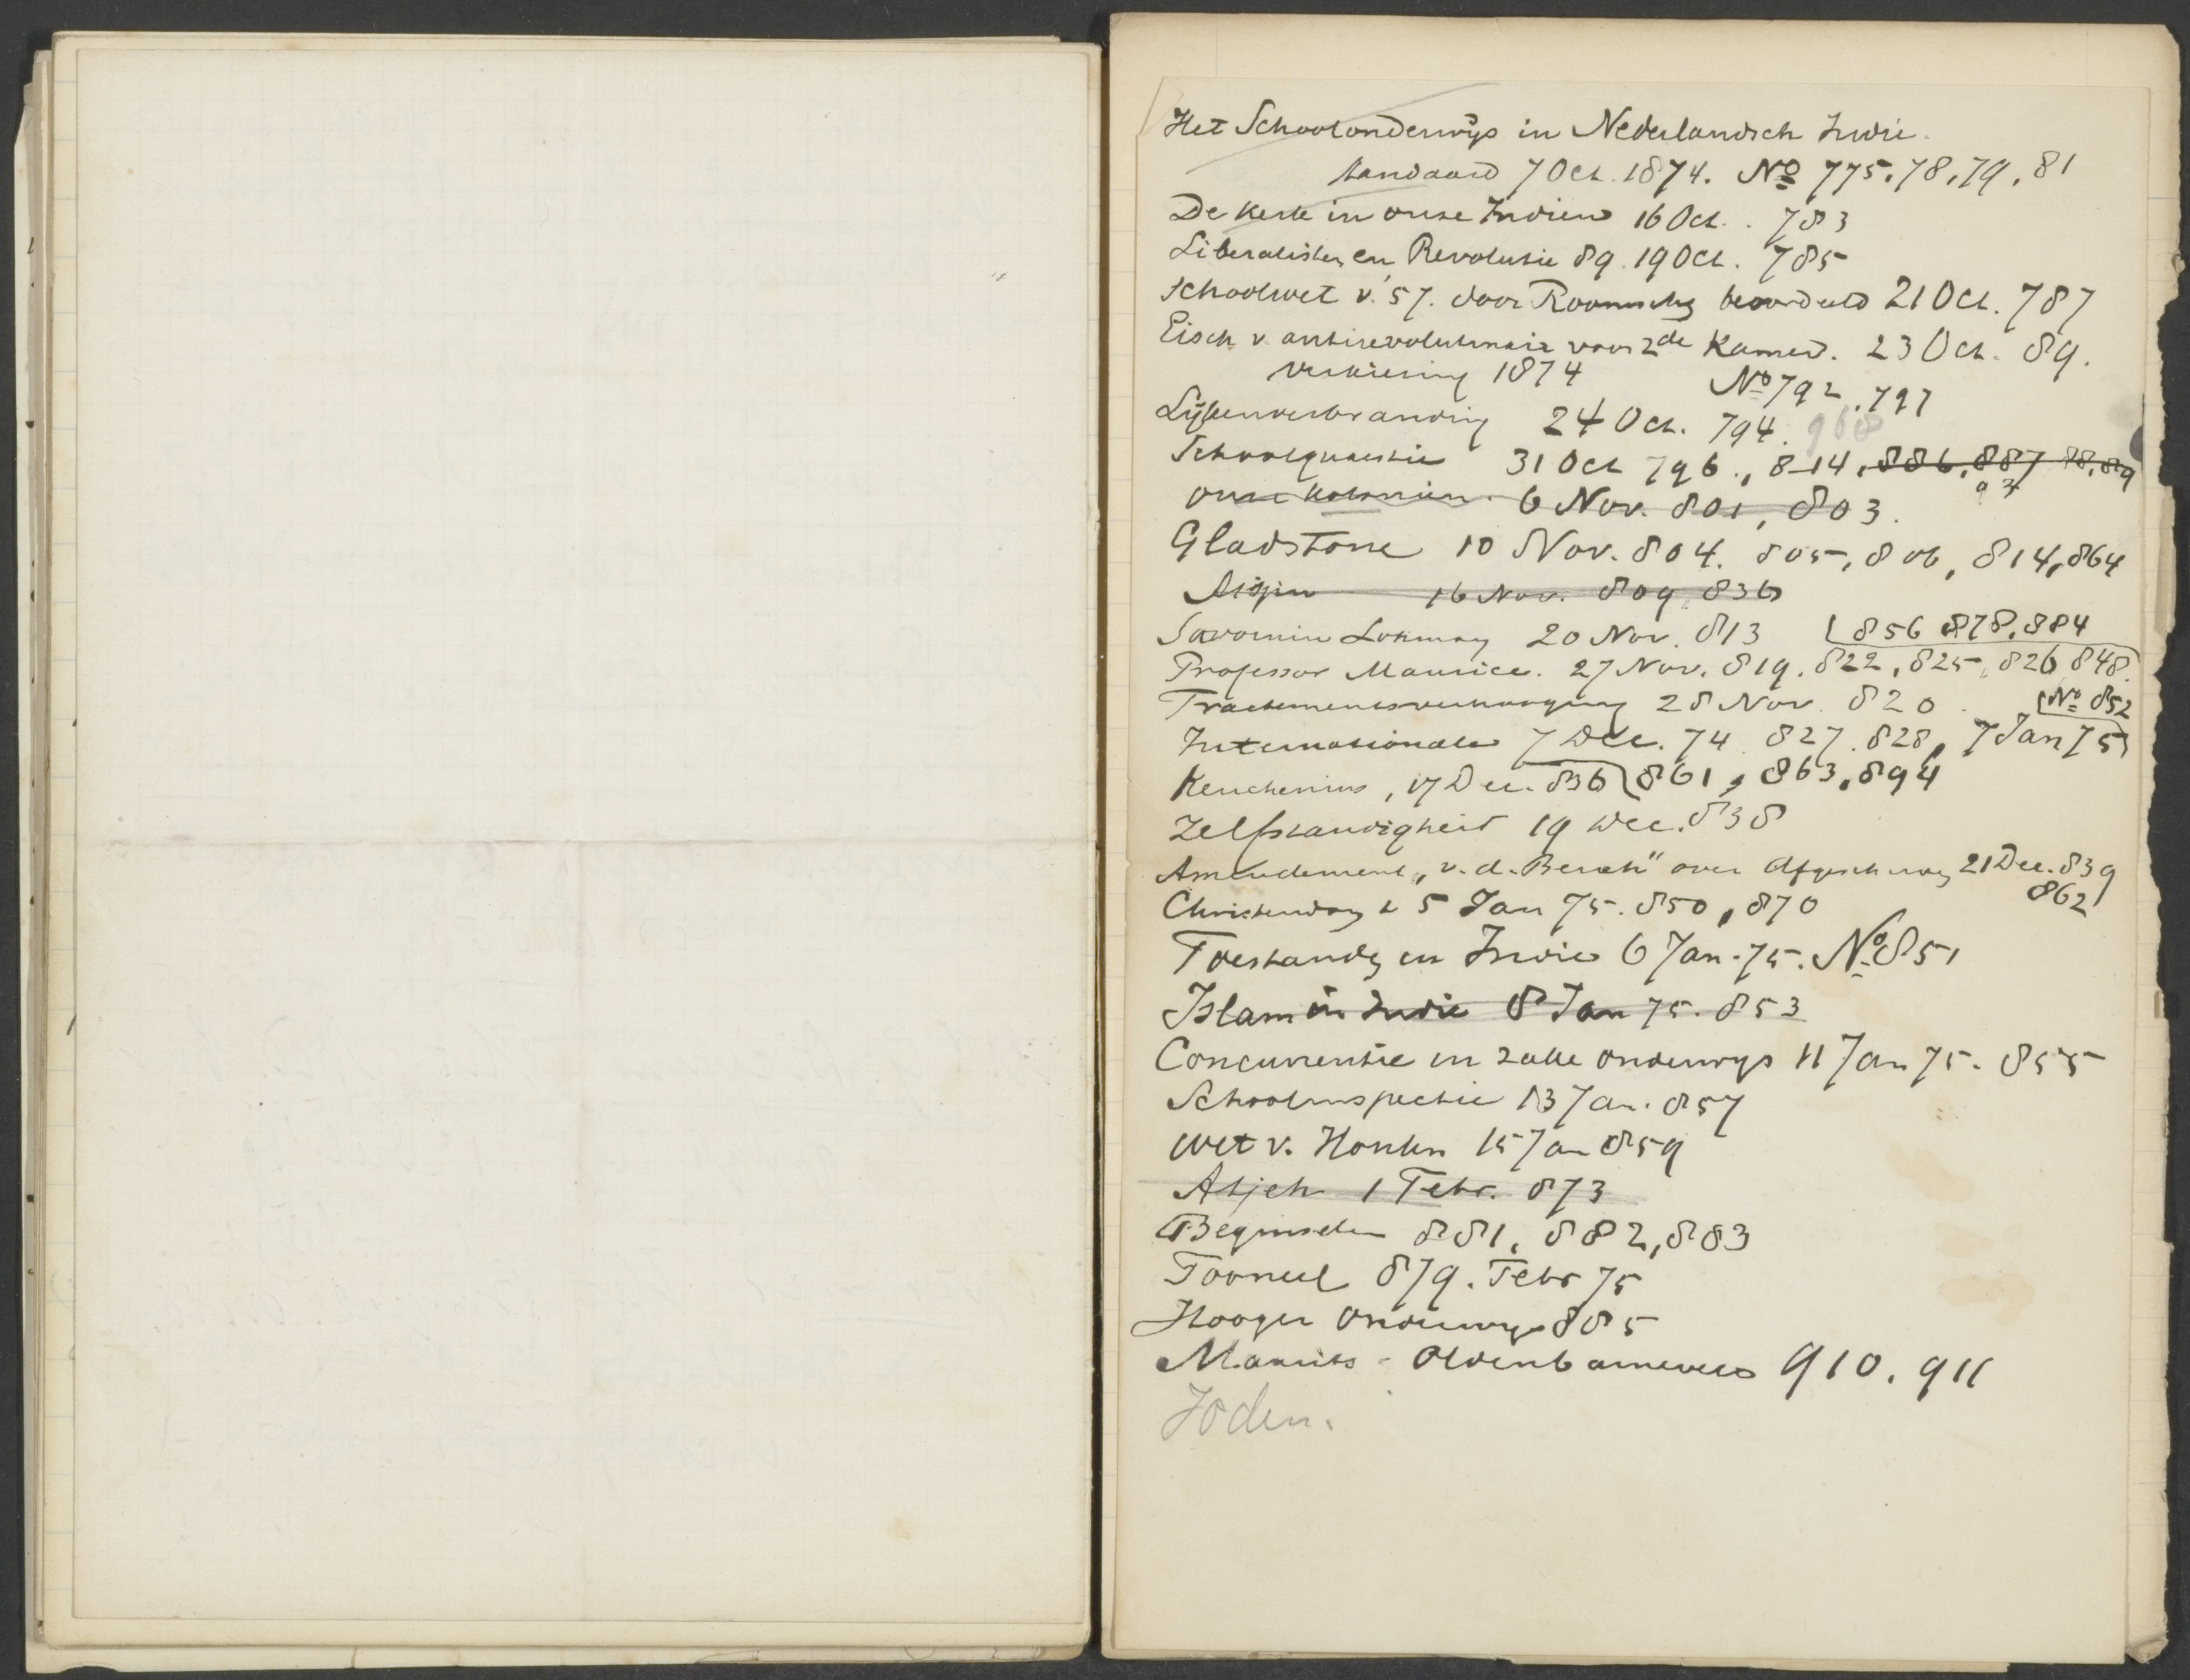 Het Schoolonderwijs in Nederlandsch Indië.
Standaard 7 Oct. 1874. No 775, 78, 79, 81
De Kerk in onze Indiën 16 Oct. . 783
Liberalisten en Revolutie 89. 19 Oct. 785
Schoolwet v. 57. door Roomschen beoordeeld 21 Oct. 787
Eisch v. antirevolutionair voor 2de Kamer. 23 Oct. 89.
verkiezing 1874 No 792, 797
Lijkenverbranding 24 Oct. 794. 968
Schoolquaestie 31 Oct 796., 814, 886, 887 88, 89
onze Koloniën. 6 Nov. 801, 803.
Gladstone 10 Nov. 804. 805, 806, 814, 864
16 Nov. 809, 836
Savornin Lohman 20 Nov. 813 856 878, 884
Professor Maurice. 27 Nov. 819. 822, 825, 826 848.
Tractementsverhooging 28 Nov. 820. No 852
Internationale 7 Dec. 74 827. 828, 7 Jan 75
Keuchenius, 17 Dec. 836 861, 863, 894
Zelfstandigheid 19 Dec. 838
Amendement „v. d. Berch" over 21 Dec. 839
862
Christendom 5 Jan 75. 850, 870
Toestanden in Indië 6 Jan. 75. No 851
Islam in Indië 8 Jan 75. 853
Concurrentie in zake onderwijs 11 Jan 75. 855
Schoolinspectie 13 Jan. 857
Wet v. Houten 15 Jan 859
Atjeh 1 Febr. 873
Beginselen 881, 882, 883
Tooneel 879. Febr 75
Hooger Onderwijs 885
Maurits - Oldenbarneveld 910. 911
Joden.